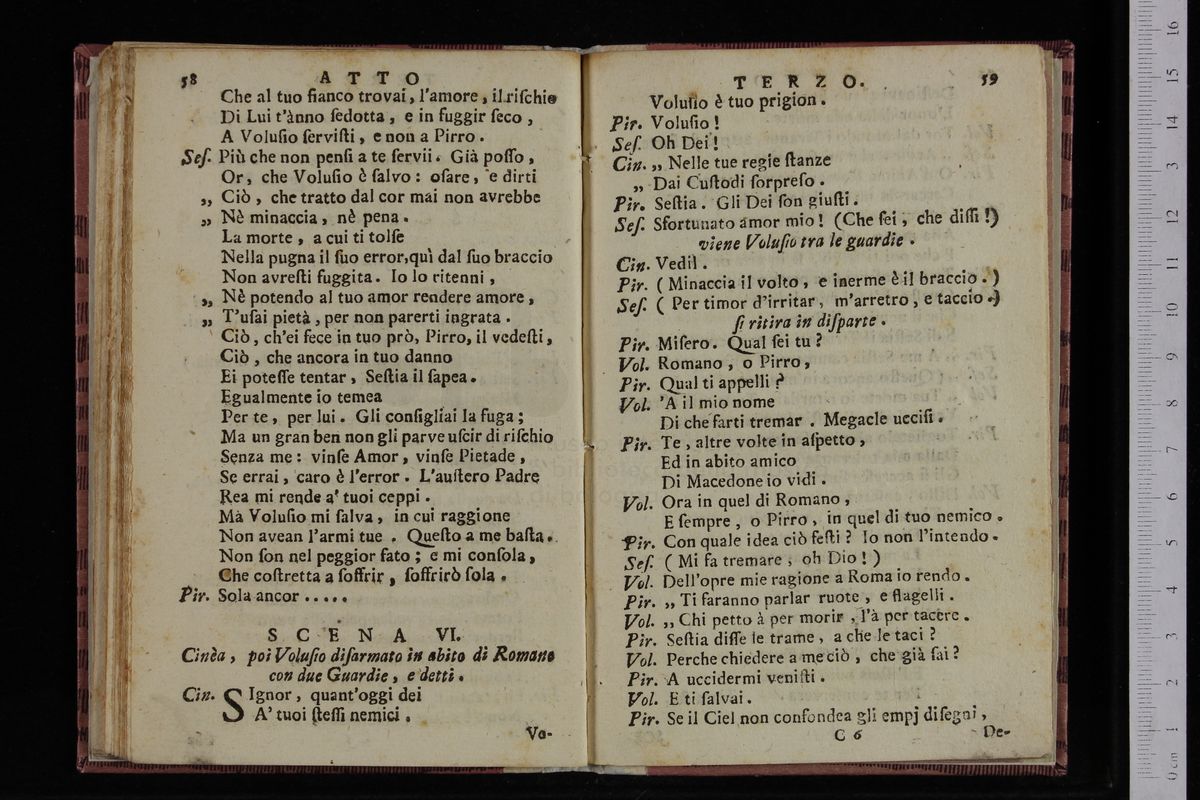 58 ATTO
Che al tuo fianco trovai, l'amore, il riſchio
Di Lui t'ànno ſedotta, e in fuggir ſeco,
A Voluſio ſerviſti, e non a Pirro.
Seſ. Più che non penſi a te ſervii. Già poſſo,
Or, che Voluſio è ſalvo: oſare, e dirti
„ Ciò, che tratto dal cor mai non avrebbe
„ Nè minaccia, nè pena.
La morte, a cui ti tolſe
Nella pugna il ſuo error, quì dal ſuo braccio
Non avreſti fuggita. Io lo ritenni,
„ Nè potendo al tuo amor rendere amore,
„ T'uſai pietà, per non parerti ingrata.
Ciò, ch'ei fece in tuo prò, Pirro, il vedeſti,
Ciò, che ancora in tuo danno
Ei poteſſe tentar, Seſtia il ſapea.
Egualmente io temea
Per te, per lui. Gli conſigliai la fuga;
Ma un gran ben non gli parve uſcir di riſchio
Senza me: vinſe Amor, vinſe Pietade,
Se errai, caro è l'error. L'auſtero Padre
Rea mi rende a' tuoi ceppi.
Mà Voluſio mi ſalva, in cui raggione
Non avean l'armi tue. Queſto a me baſta.
Non ſon nel peggior fato; e mi conſola,
Che coſtretta a ſoffrir, ſoffrirò ſola.
Pir. Sola ancor.....
SCENA VI.
Cinèa, poi Voluſio diſarmato in abito di Romano
con due Guardie, e detti.
Cin. SIgnor, quant'oggi dei
A' tuoi ſteſſi nemici.
Vo-
TERZO. 59
Voluſio è tuo prigion.
Pir. Voluſio!
Seſ. Oh Dei!
Cin. „ Nelle tue regie ſtanze
„ Dai Cuſtodi ſorpreſo.
Pir. Seſtia. Gli Dei ſon giuſti.
Seſ. Sfortunato amor mio! (Che fei, che diſſi!)
viene Voluſio tra le guardie.
Cin. Vedil.
Pir. (Minaccia il volto, e inerme è il braccio.)
Seſ. (Per timor d'irritar, m'arretro, e taccio.)
ſi ritira in diſparte.
Pir. Miſero. Qual ſei tu?
Vol. Romano, o Pirro,
Pir. Qual ti appelli?
Vol. 'A il mio nome
Di che farti tremar. Megacle ucciſi.
Pir. Te, altre volte in aſpetto,
Ed in abito amico
Di Macedone io vidi.
Vol. Ora in quel di Romano,
E ſempre, o Pirro, in quel di tuo nemico.
Pir. Con quale idea ciò feſti? Io non l'intendo.
Seſ. (Mi fa tremare, oh Dio!)
Vol. Dell'opre mie ragione a Roma io rendo.
Pir. „ Ti faranno parlar ruote, e flagelli.
Vol. „ Chi petto à per morir, l'à per tacere.
Pir. Seſtia diſſe le trame, a che le taci?
Vol. Perche chiedere a me ciò, che già ſai?
Pir. A uccidermi veniſti.
Vol. E ti ſalvai.
Pir. Se il Ciel non confondea gli empj diſegni,
C 6 De-
16
15
14
13
12
11
10
9
8
7
6
5
4
3
2
1
0 cm